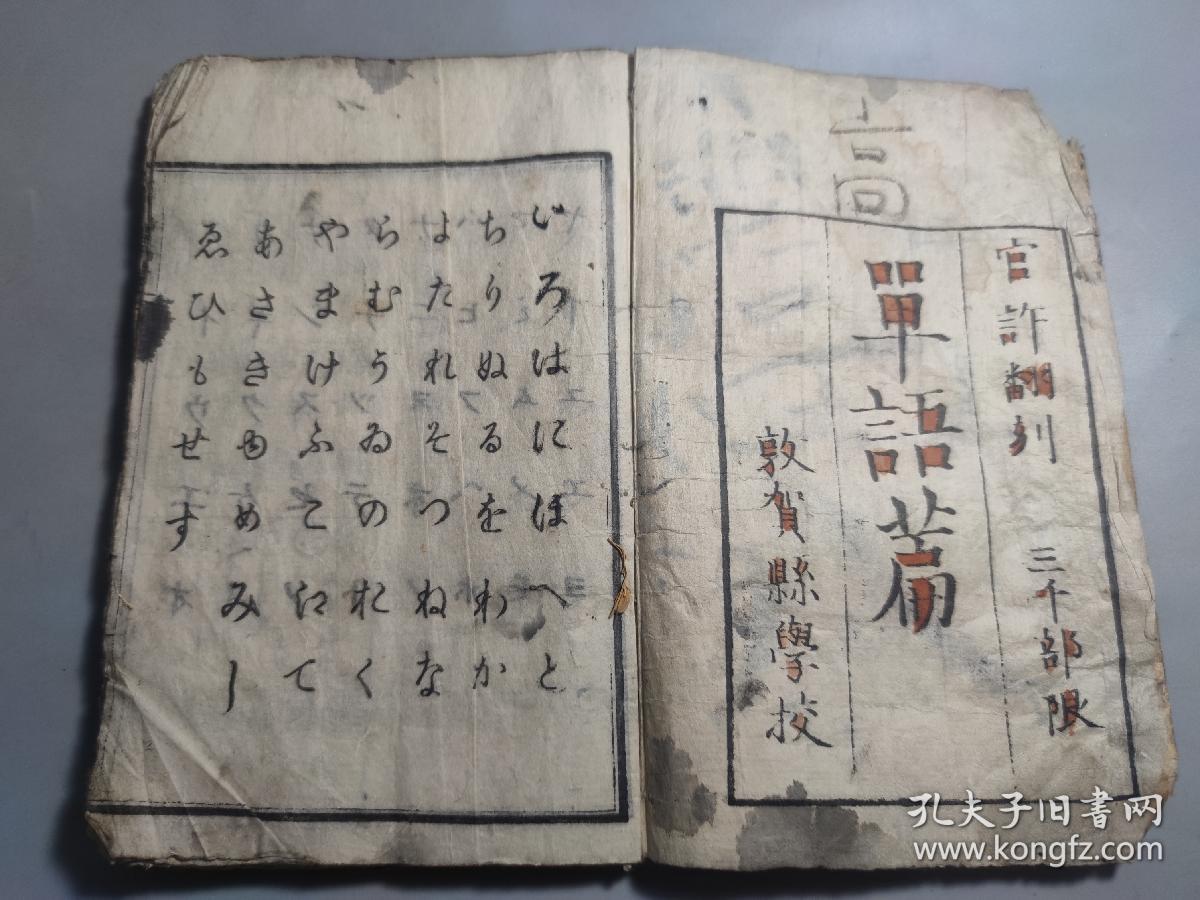 官許翻刻 三千部限
單語篇
敦賀縣學校
いろはにほへと
ちりぬるをわか
よたれそつねな
らむうゐのおく
やまけふこえて
あさきゆめみし
ゑひもせす
孔夫子旧书网
www.kongfz.com